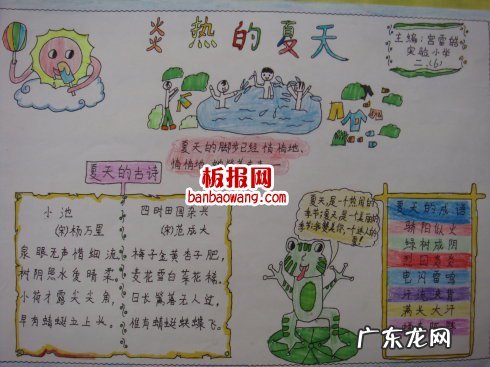 炎热的夏天
主编:宫雷皓
实验小学
二.(6)
夏天的脚步已经悄悄地、
悄悄地
板报网
banbaowang.com
夏天的古诗
小池
(宋)杨万里
泉眼无声惜细流,
树阴照水爱晴柔。
小荷才露尖尖角,
早有蜻蜓立上头。
四时田园杂兴
(宋)范成大
梅子金黄杏子肥,
麦花雪白菜花稀。
日长篱落无人过,
惟有蜻蜓蛱蝶飞。
夏天,是一个热闹的
季节;夏天,是一个
夏天的成语
骄阳似火
绿树成阴
烈日炎炎
电闪雷鸣
汗流浃背
满头大汗
广东龙网